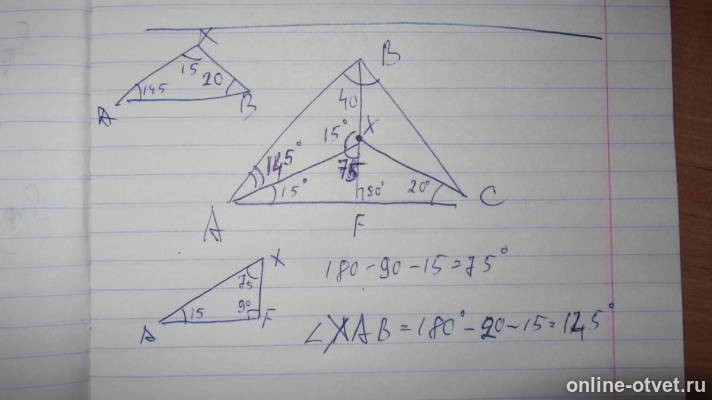 X
15
145
20
A
B
B
40
15°
X
145°
75
15°
90°
20°
A
F
C
X
75
90
15
A
F
180-90-15=75°
∠XAB=180°-20-15=145°
online-otvet.ru